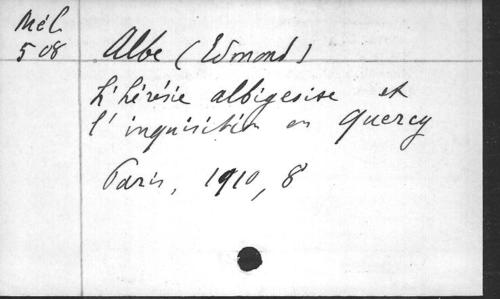 Mél.
508
Albe (Edmond)
L'hérésie albigeoise et
l'inquisition en Quercy
Paris, 1910, 8°